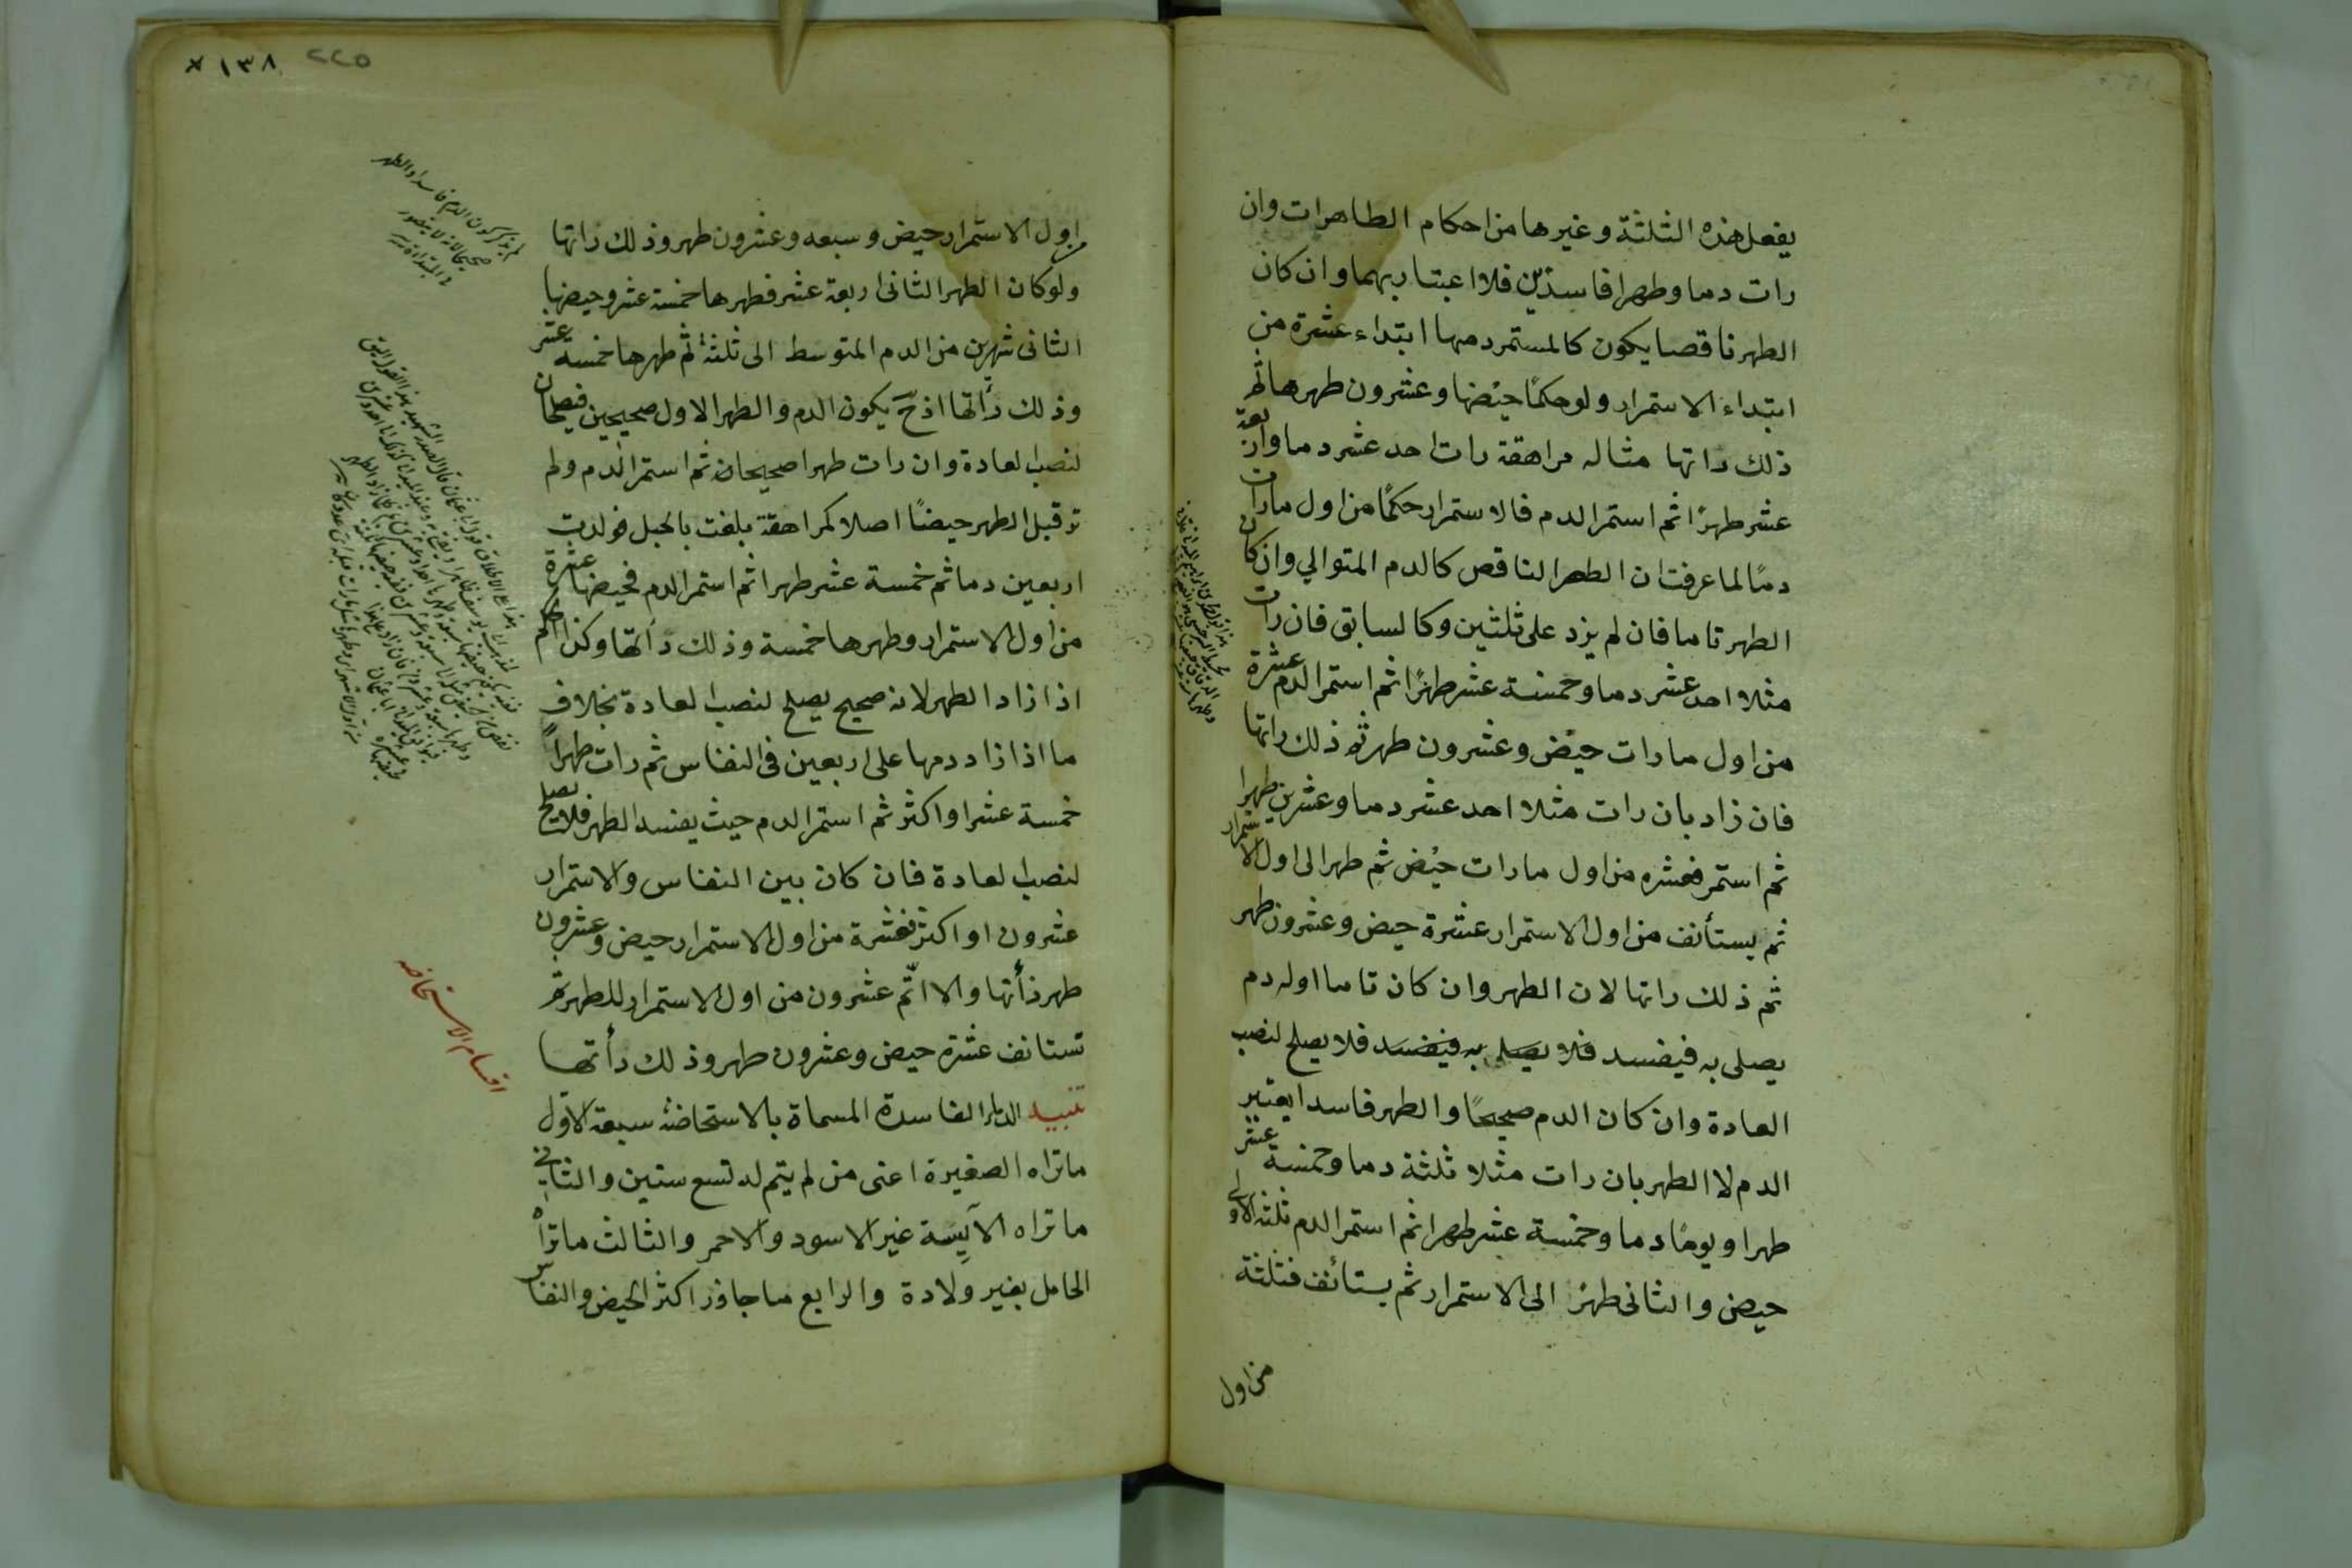 يفعل هذه الثلثة وغيرها من احكام الطاهرات وان
رات دما وطهرا فاسدين فلا اعتبار بهما وان كان
الطهر ناقصا يكون كالمستمر دمها ابتداء عشرة من
ابتداء الاستمرار ولو حكمًا حيضها وعشرون طهرها ثم
ذلك دأتها مثاله مراهقة رات احد عشر دما واربعة
عشر طهرًا ثم استمر الدم فالاستمرار حكمًا من اول مارات
دمًا لما عرفت ان الطهر الناقص كالدم المتوالي وان كان
الطهر تاما فان لم يزد على ثلثين وكالسابق فان رات
مثلا احد عشر دما وخمسة عشر طهرًا ثم استمر الدم عشرة
من اول مارات حيض وعشرون طهر ثم ذلك دأتها
فان زاد بان رات مثلا احد عشر دما وعشرين طهرا
ثم استمر فعشره من اول مارات حيض ثم طهر الى اول الاستمرار
ثم يستأنف من اول الاستمرار عشرة حيض وعشرون طهر
ثم ذلك دأتها لان الطهر وان كان تاما اوله دم
يصلى به فيفسد فلا يصلى به فيفسد فلا يصلح لنصب
العادة وان كان الدم صحيحًا والطهر فاسدا يعتبر
الدم لا الطهر بان رات مثلا ثلثة دما وخمسة عشر
طهرا ويومًا دما وخمسة عشر طهرا ثم استمر الدم ثلثه الاولى
حيض والثانى طهر الى الاستمرار ثم يستائف فثلثة
من اول
١٣٨ ٢٢٥
اول الاستمرار حيض وسبعه وعشرون طهر وذلك دأتها
ولو كان الطهر الثانى اربعة عشر فطهرها خمسة عشر وحيضها
الثانى شهرين من الدم المتوسط الى ثلثة ثم طهرها خمسه عشر
وذلك دأتها اذ ح يكون الدم والطهر الاول صحيحين فيصلحان
لنصب العادة وان رات طهرا صحيحان ثم استمر الدم ولم
تر قبل الطهر حيضًا اصلا كمراهقة بلغت بالحبل فولدت
اربعين دما ثم خمسة عشر طهرا ثم استمر الدم فحيضها عشرة
من اول الاستمرار وطهرها خمسة وذلك دأتها وكذا الحكم
اذا زاد الطهر لانه صحيح يصلح لنصب العادة بخلاف
ما اذا زاد دمها على اربعين فى النفاس ثم رات طهرًا
خمسة عشر او اكثر ثم استمر الدم حيث يفسد الطهر فلا يصلح
لنصب العادة فان كان بين النفاس والاستمرار
عشرون او اكثر فعشرة من اول الاستمرار حيض وعشرون
طهر دأتها والا اتم عشرون من اول الاستمرار للطهر ثم
تستانف عشرة حيض وعشرون طهر وذلك دأتها
تنبيه الدماء الفاسدة المسماة بالاستحاضه سبعة الاول
ماتراه الصغيرة اعنى من لم يتم له تسع سنين والثانى
ماتراه الآيسة غير الاسود والاحمر والثالث ماتراه
الحامل بغير ولادة والرابع ما جاوز اكثر الحيض والنفاس
اقسام الاستحاضه